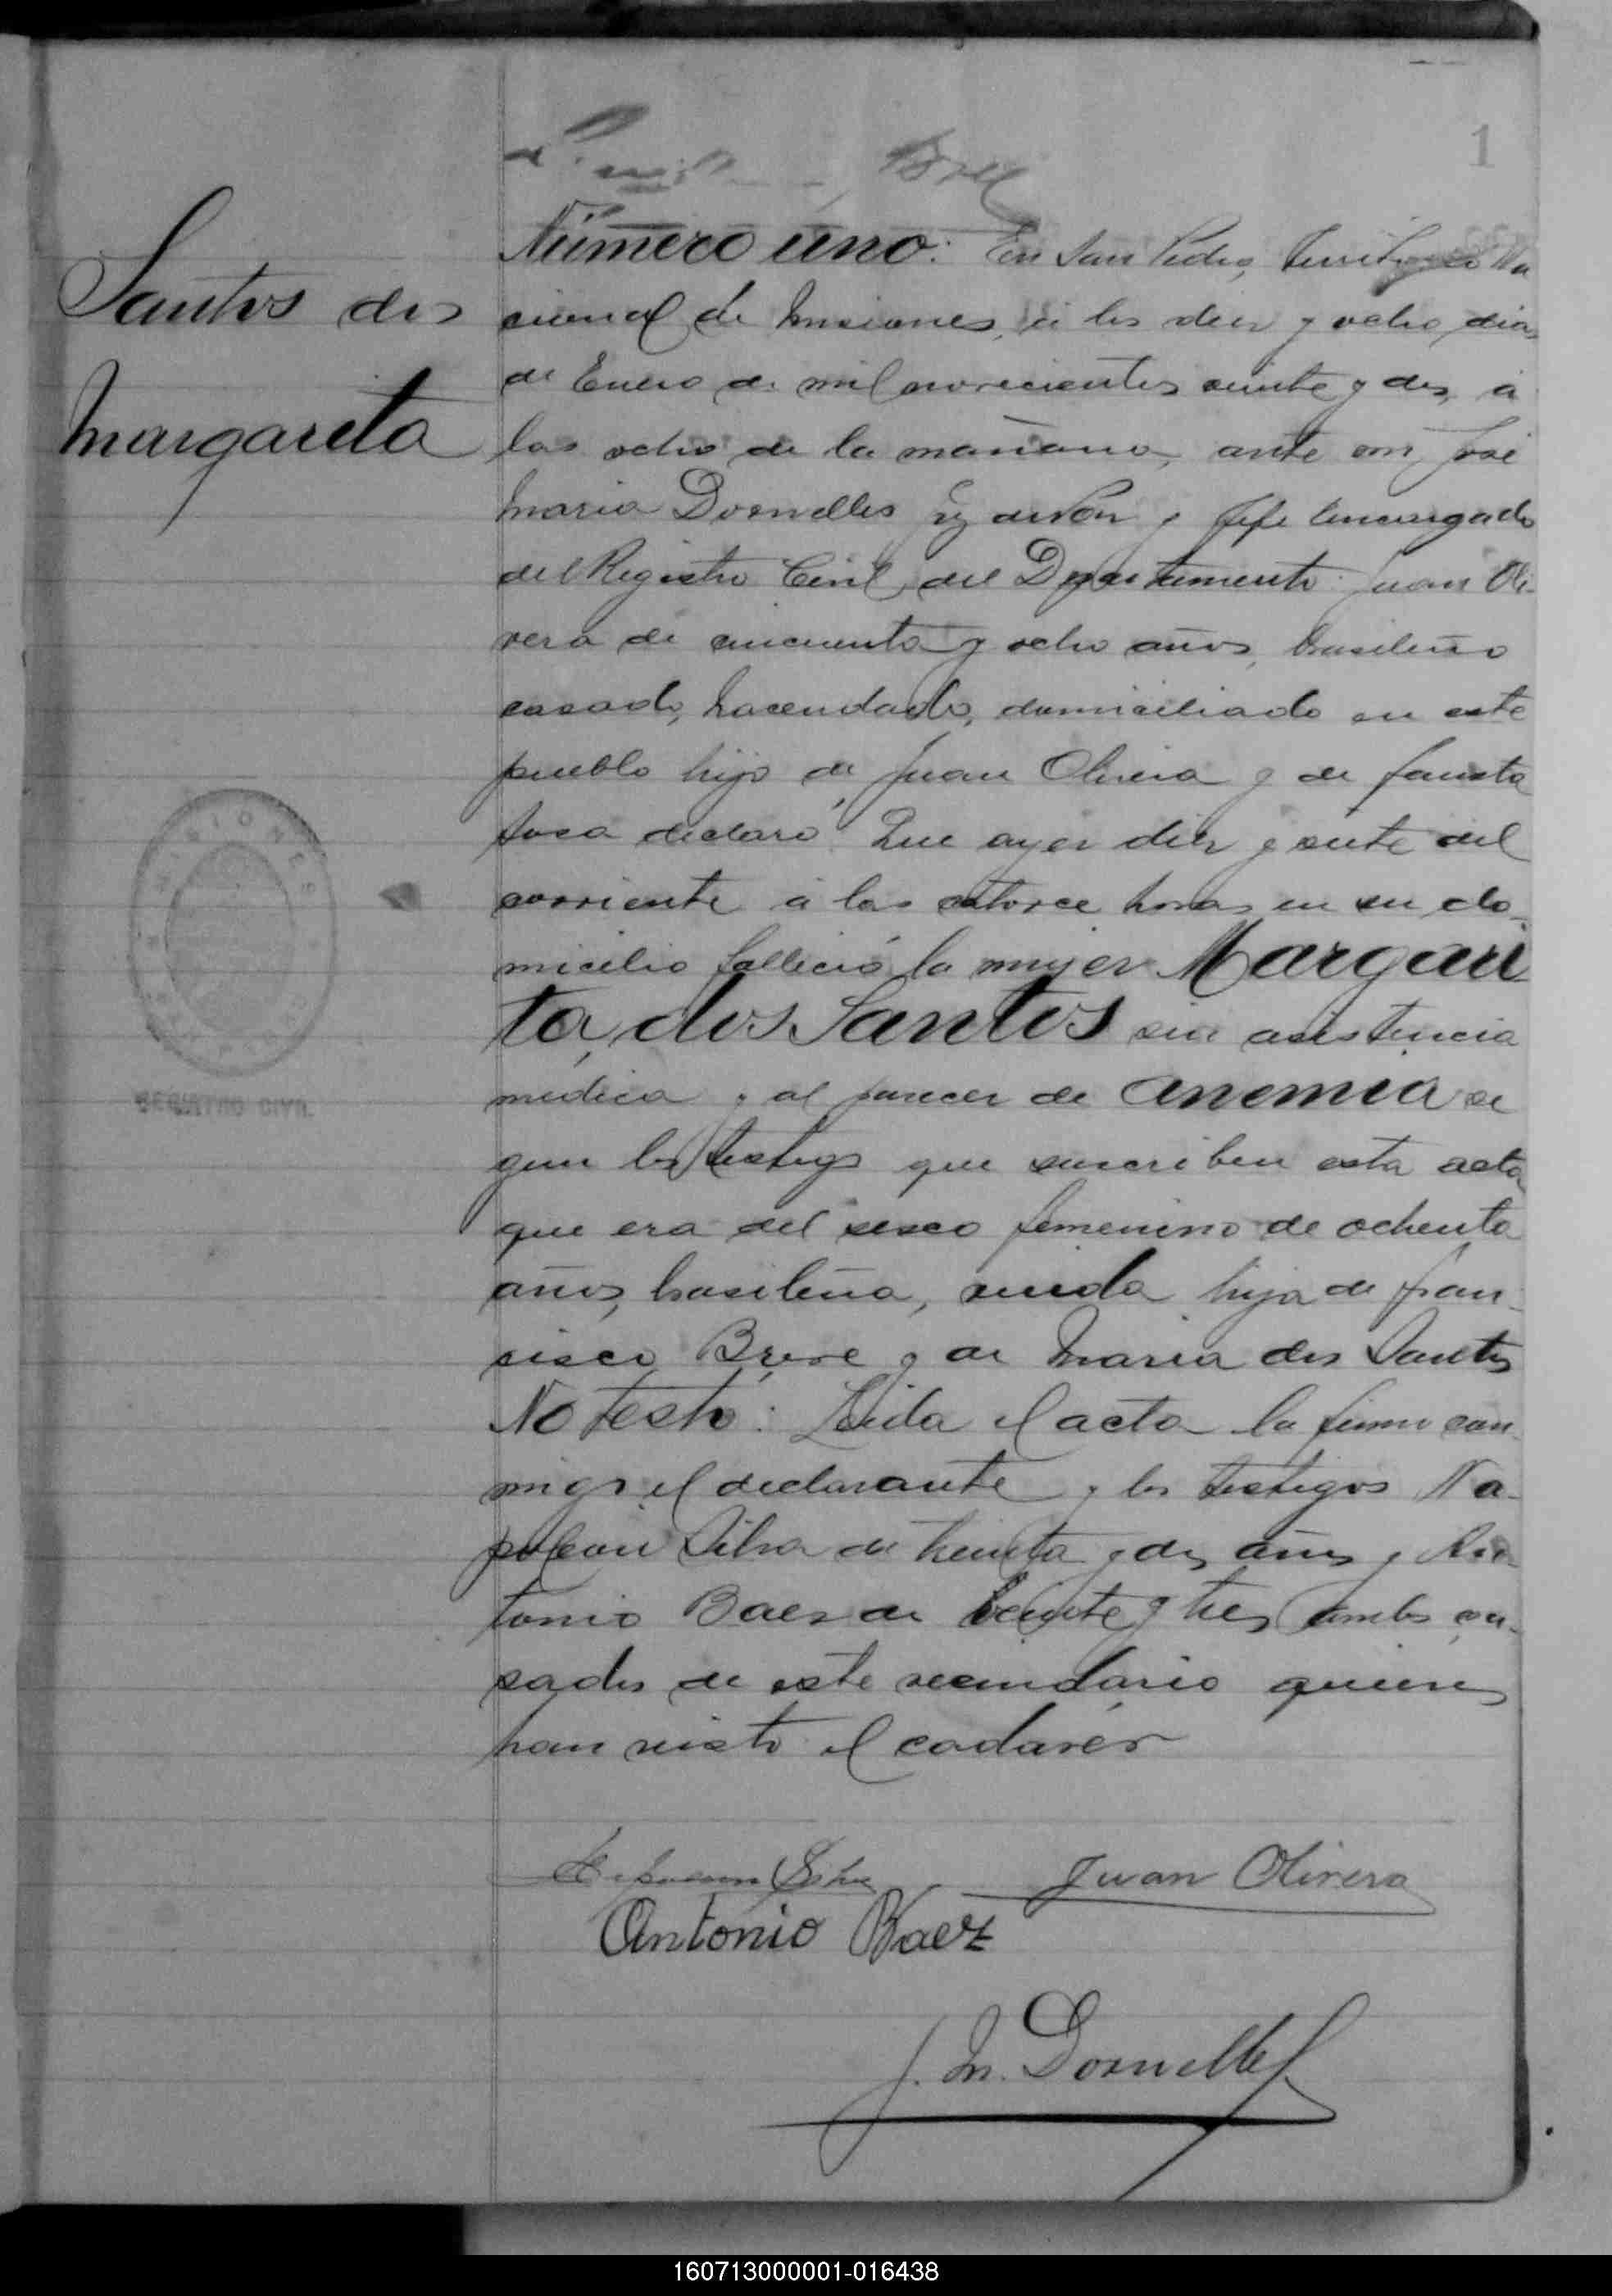 1
Santos dos
Margarita
Número uno: En San Pedro, Territorio Na
cional de Misiones, á los diez y ocho dias
de Enero de mil novecientos veinte y dos, á
las ocho de la mañana, ante mi, José
Maria Dornelles Juez de Paz y Jefe Encargado
del Registro Civil del Departamento: Juan Oli-
vera de cincuenta y ocho años, brasilero
casado, hacendado, domiciliado en este
pueblo hijo de Juan Olivera y de Fausta
declaró: Que ayer diez y siete del
corriente á las catorce horas en su do-
micilio falleció la mujer Margari
ta, dos Santos sin asistencia
médica y al parecer de anemia se
gun los testigos que suscriben esta acta
que era del sexo femenino de ochenta
años, brasileña, viuda hija de Fran-
cisco y de Maria dos Santos
No testó: Leida el acta la firma con-
migo el declarante y los testigos Na-
poleon Silva de treinta y dos años y An-
tonio Baez de veinte y tres ambos ca-
sados de este vecindario quienes
han visto el cadáver
MISIONES
REGISTRO CIVIL
Napoleon Silva Juan Olivera
Antonio Baez
J. M. Dornelles
160713000001-016438